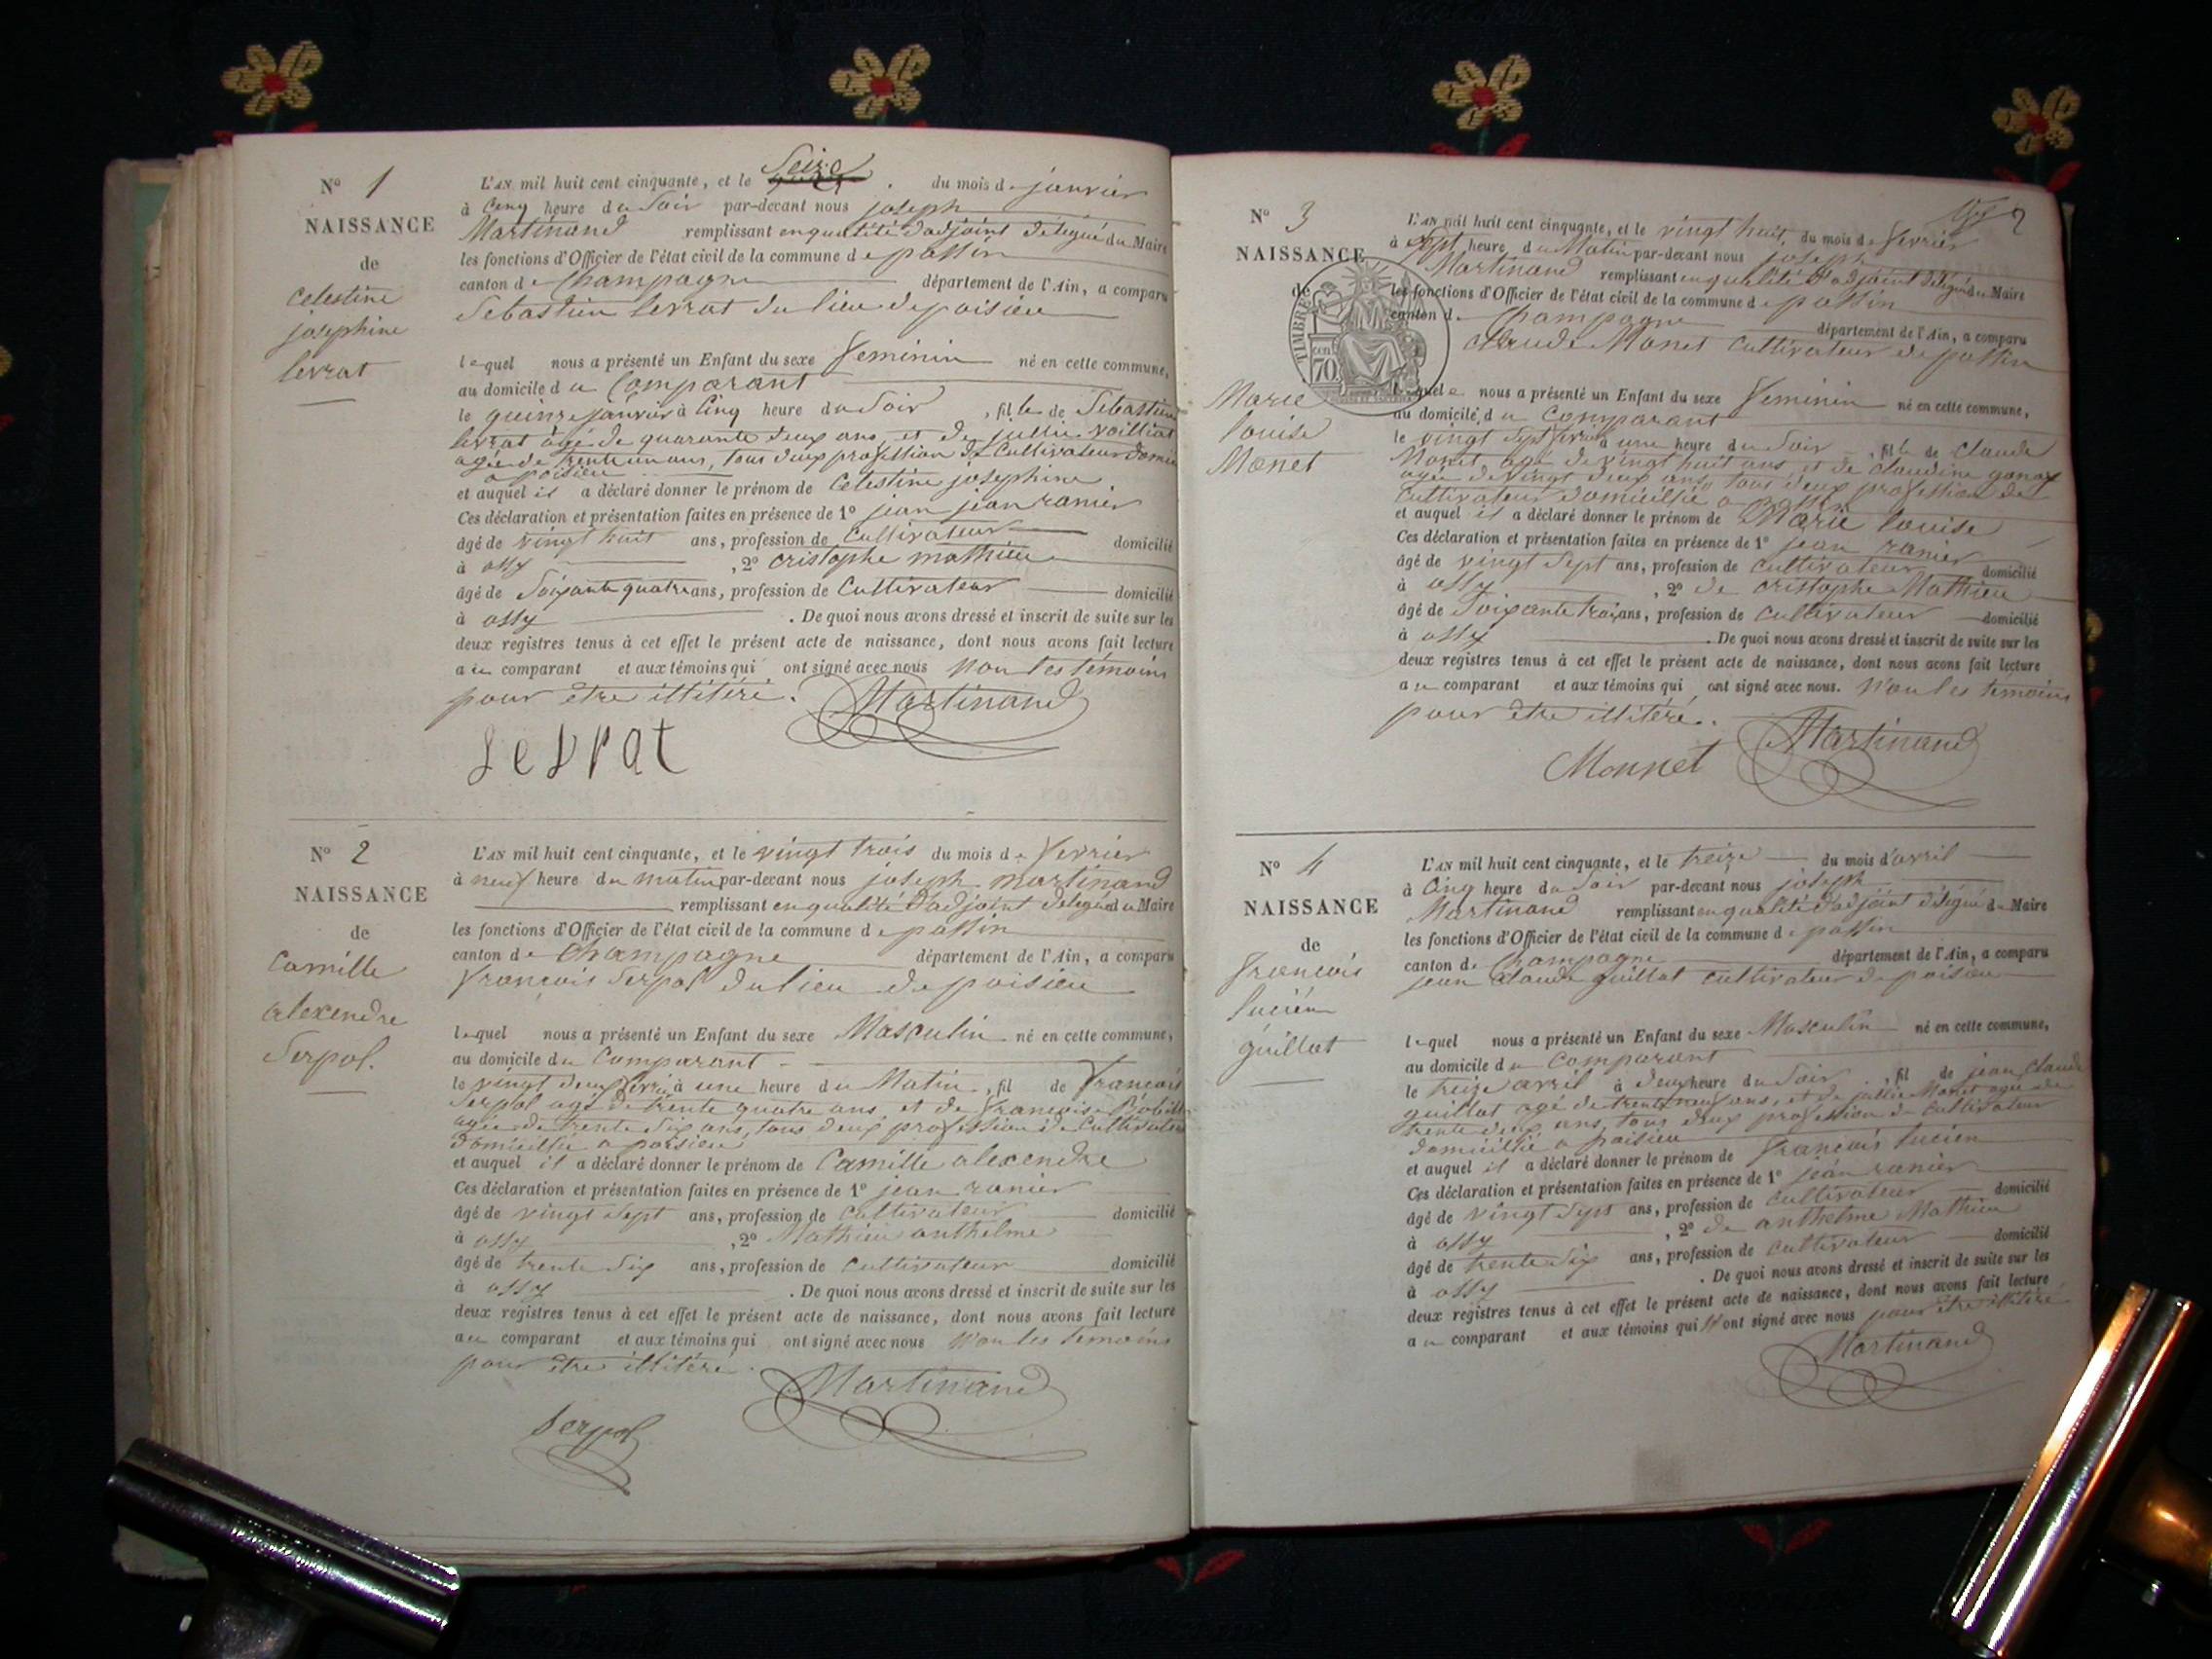 N° 1
NAISSANCE
de
Celestine
josephine
Serrat
L'AN mil huit cent cinquante, et le Seize du mois de janvier
à Cinq heure du Soir par-devant nous joseph
Martinand remplissant en qualité d'adjoint délégué du Maire
les fonctions d'Officier de l'état civil de la commune de passin
canton de Champagne département de l'Ain, a comparu
Sebastien Serrat du lieu de poisieu
lequel nous a présenté un Enfant du sexe feminin né en cette commune,
au domicile du Comparant
le quinze janvier à Cinq heure du Soir, fille de Sebastien
Serrat âgé de quarante deux ans, et de jullie
agée de trente un ans, tous deux profession de Cultivateur
a poisieu
et auquel il a déclaré donner le prénom de Celestine josephine
Ces déclaration et présentation faites en présence de 1° jean jean ranier
âgé de vingt huit ans, profession de Cultivateur domicilié
à ossy, 2° cristophe mathieu
âgé de Soixante quatre ans, profession de Cultivateur domicilié
à ossy. De quoi nous avons dressé et inscrit de suite sur les
deux registres tenus à cet effet le présent acte de naissance, dont nous avons fait lecture
au comparant et aux témoins qui ont signé avec nous Non les témoins
pour être illitéré. Martinand
Serrat
N° 2
NAISSANCE
de
Camille
alexendre
Serpol.
L'AN mil huit cent cinquante, et le vingt trois du mois de fevrier
à neuf heure du matin par-devant nous joseph martinand
remplissant en qualité d'adjoint délégué du Maire
les fonctions d'Officier de l'état civil de la commune de passin
canton de Champagne département de l'Ain, a comparu
françois Serpol du lieu de poisieu
lequel nous a présenté un Enfant du sexe Masculin né en cette commune,
au domicile du Comparant
le vingt deux fevrier à une heure du Matin, fil de françois
Serpol agé de trente quatre ans, et de françoise
agée de trente Six ans, tous deux profession de Cultivateur
domicillié a poisieu
et auquel il a déclaré donner le prénom de Camille alexendre
Ces déclaration et présentation faites en présence de 1° jean ranier
âgé de vingt Sept ans, profession de Cultivateur domicilié
à ossy, 2° Mathieu anthelme
âgé de trente Six ans, profession de Cultivateur domicilié
à ossy. De quoi nous avons dressé et inscrit de suite sur les
deux registres tenus à cet effet le présent acte de naissance, dont nous avons fait lecture
au comparant et aux témoins qui ont signé avec nous Non les temoins
pour être illitéré. Martinand
Serpol
2
N° 3
NAISSANCE
de
TIMBRE
70
Marie
louise
Monet
L'AN mil huit cent cinquante, et le vingt huit du mois de fevrier
à Sept heure du Matin par-devant nous joseph
Martinand remplissant en qualité d'adjoint délégué du Maire
les fonctions d'Officier de l'état civil de la commune de passin
canton de Champagne département de l'Ain, a comparu
Claude Monet Cultivateur de passin
lequel nous a présenté un Enfant du sexe feminin né en cette commune,
au domicile du Comparant
le vingt Sept fevrier à une heure du Soir, fille de Claude
Monet, agé de vingt huit ans, et de Claudine
agée de vingt deux ans, tous deux profession de
Cultivateur domicillié a passin
et auquel il a déclaré donner le prénom de Marie louise
Ces déclaration et présentation faites en présence de 1° jean ranier
âgé de vingt Sept ans, profession de Cultivateur domicilié
à ossy, 2° de cristophe Mathieu
âgé de Soixante trois ans, profession de Cultivateur domicilié
à ossy. De quoi nous avons dressé et inscrit de suite sur les
deux registres tenus à cet effet le présent acte de naissance, dont nous avons fait lecture
au comparant et aux témoins qui ont signé avec nous. Non les temoins
pour être illitéré. Martinand
Monnet
N° 4
NAISSANCE
de
françois
lucien
guillot
L'AN mil huit cent cinquante, et le treize du mois d'avril
à Cinq heure du Soir par-devant nous joseph
Martinand remplissant en qualité d'adjoint délégué du Maire
les fonctions d'Officier de l'état civil de la commune de passin
canton de Champagne département de l'Ain, a comparu
jean Claude guillot Cultivateur de poisieu
lequel nous a présenté un Enfant du sexe Masculin né en cette commune,
au domicile du Comparant
le treize avril à deux heure du Soir, fil de jean Claude
guillot agé de trente neuf ans, et de jullie Monet agée de
trente deux ans, tous deux profession de Cultivateur
domicillié a poisieu
et auquel il a déclaré donner le prénom de françois lucien
Ces déclaration et présentation faites en présence de 1° jean ranier
âgé de vingt Sept ans, profession de Cultivateur domicilié
à ossy, 2° de anthelme Mathieu
âgé de trente Six ans, profession de Cultivateur domicilié
à ossy. De quoi nous avons dressé et inscrit de suite sur les
deux registres tenus à cet effet le présent acte de naissance, dont nous avons fait lecture
au comparant et aux témoins qui N'ont signé avec nous pour être illitéré
Martinand